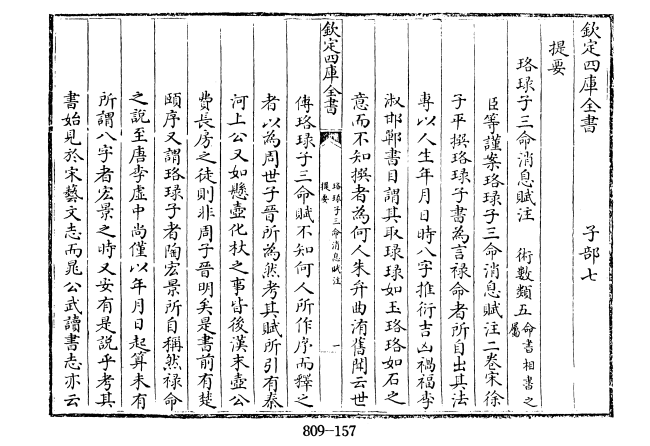 欽定四庫全書 子部七
提要
珞琭子三命消息賦注 術數類五 命書相書之屬
臣等謹案珞琭子三命消息賦注二卷宋徐
子平撰珞琭子書為言禄命者所自出其法
專以人生年月日時八字推衍吉凶禍福李
淑邯鄲書目謂其取琭琭如玉珞珞如石之
意而不知撰者為何人朱弁曲洧舊聞云世
欽定四庫全書 珞琭子三命消息賦注 提要 一
傳珞琭子三命賦不知何人所作序而釋之
者以為周世子晉所為然考其賦所引有秦
河上公又如懸壺化杖之事皆後漢末壺公
費長房之徒則非周子晉明矣是書前有楚
頤序又謂珞琭子者陶宏景所自稱然禄命
之說至唐李虛中尚僅以年月日起算未有
所謂八字者宏景之時又安有是說乎考其
書始見於宋藝文志而晁公武讀書志亦云
809-157